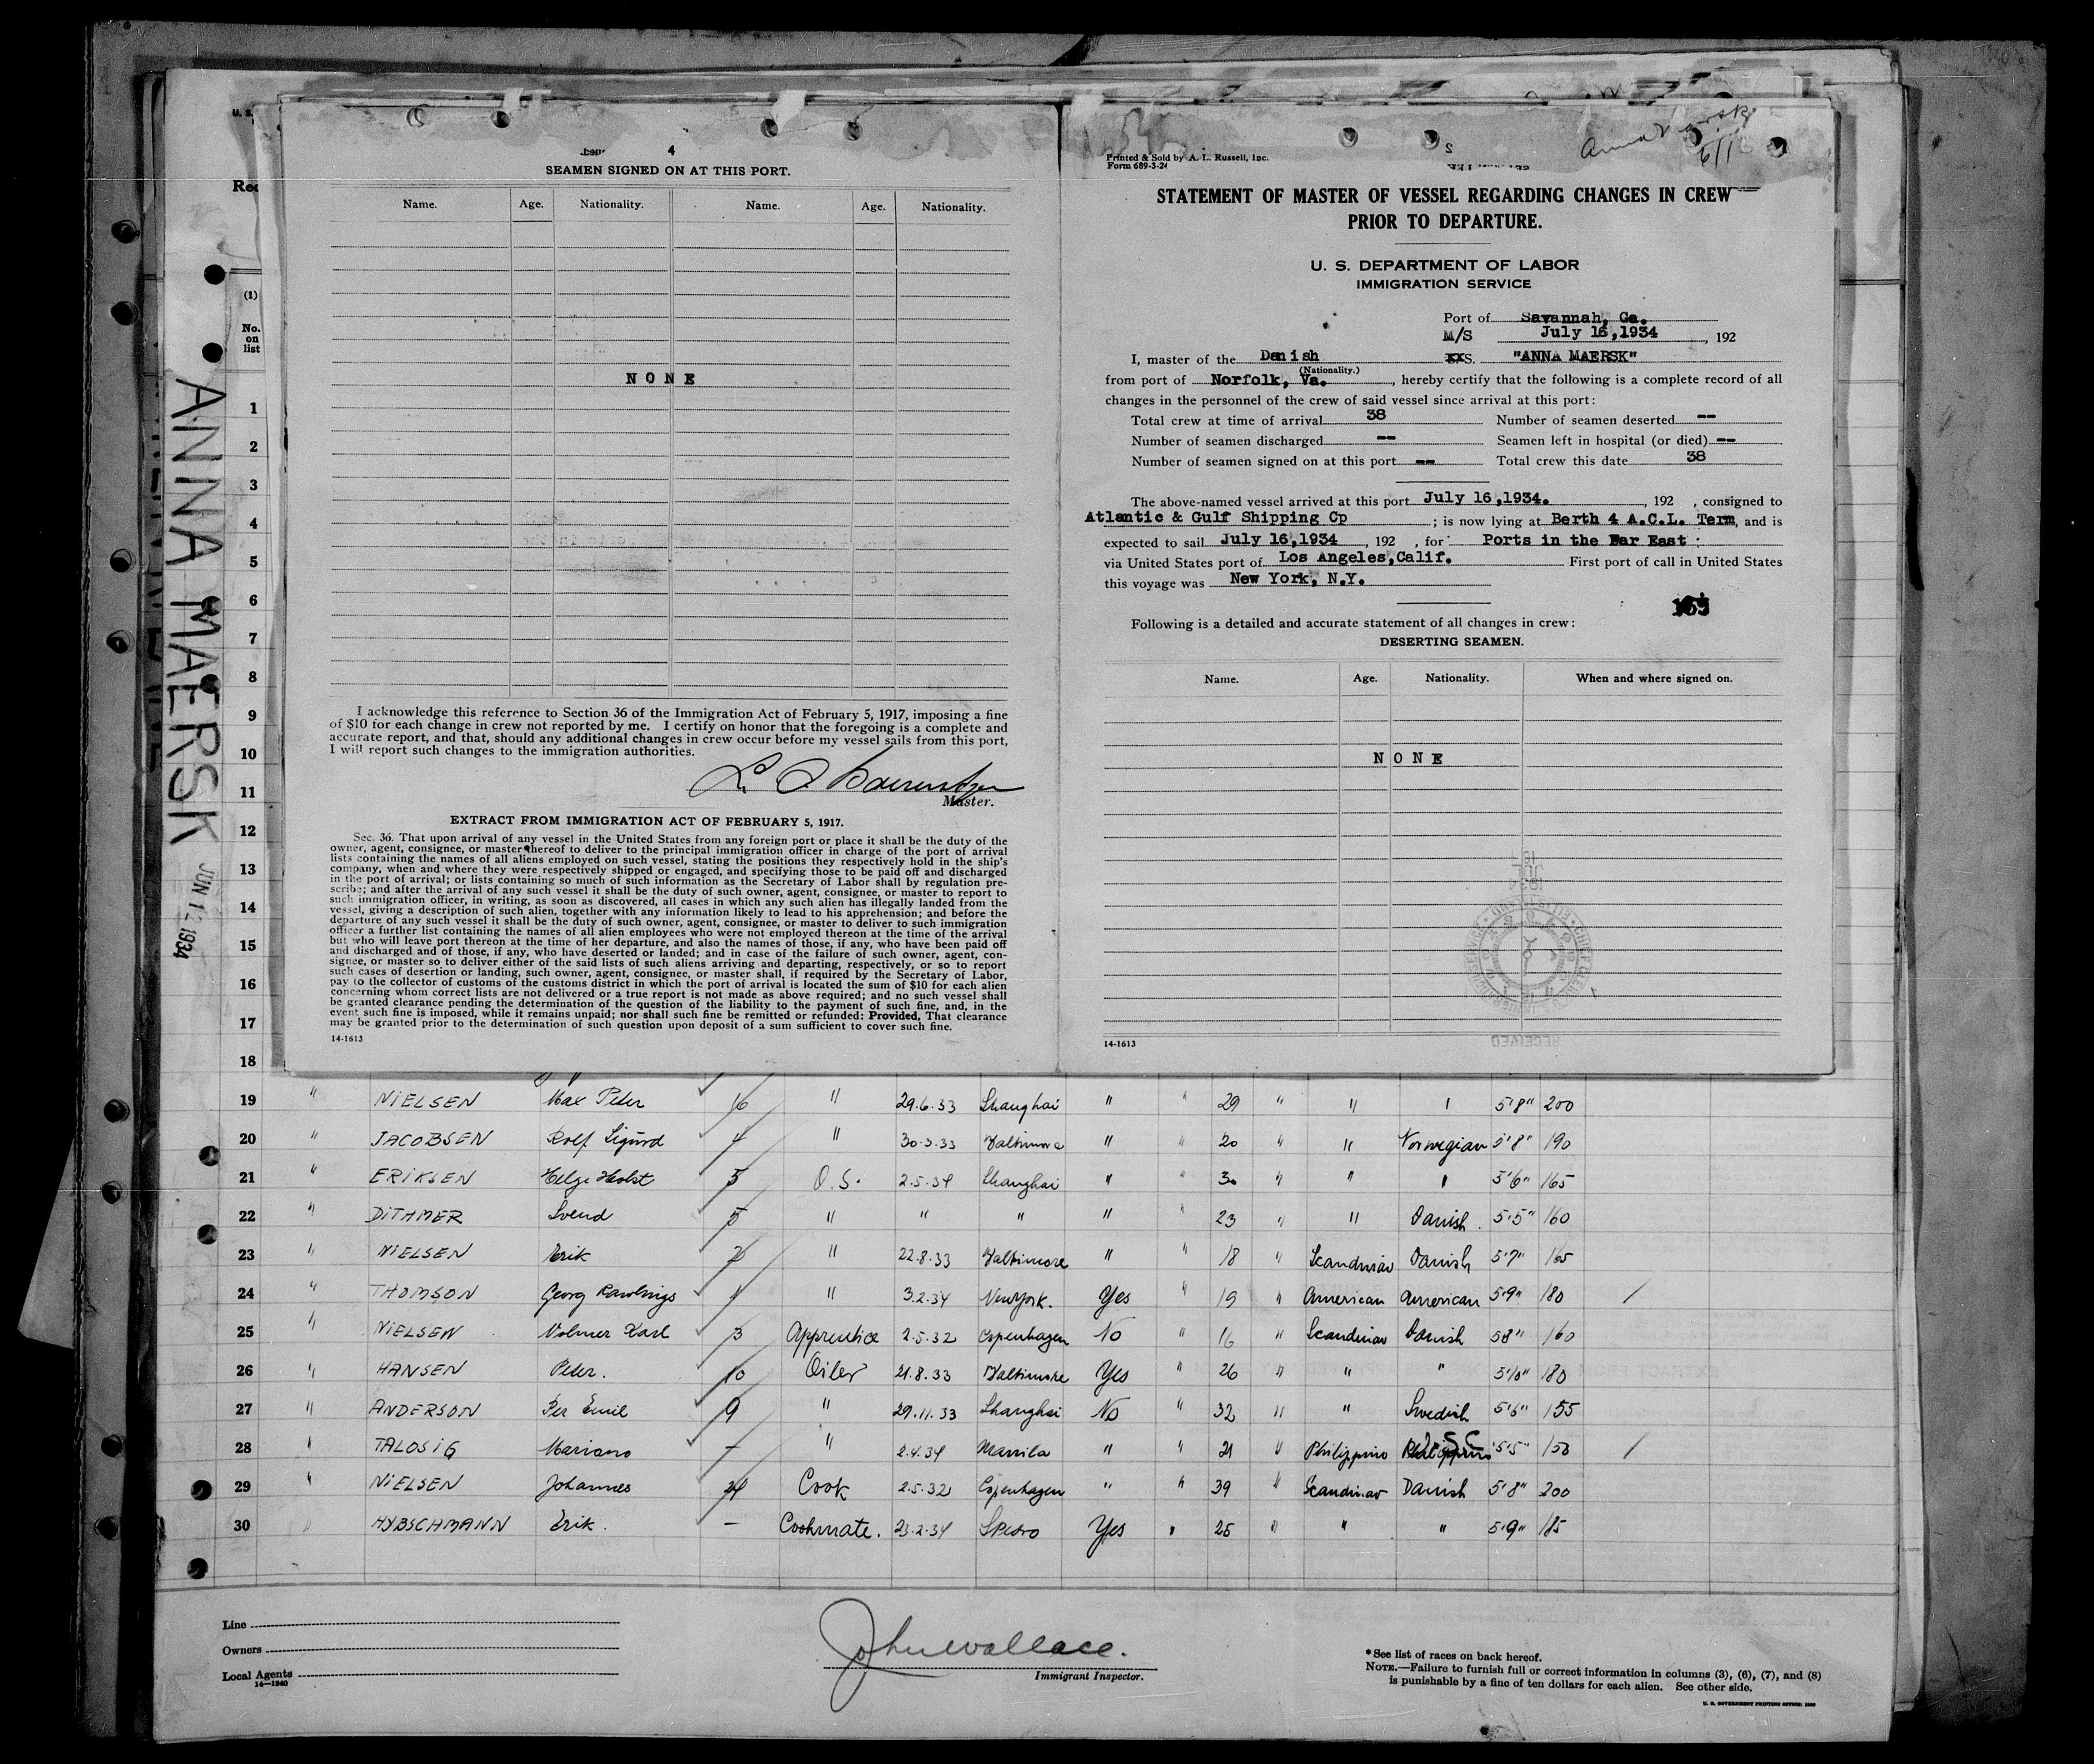 4
SEAMEN SIGNED ON AT THIS PORT.
Name. Age. Nationality. Name. Age. Nationality.
NONE
I acknowledge this reference to Section 36 of the Immigration Act of February 5, 1917, imposing a fine
of $10 for each change in crew not reported by me. I certify on honor that the foregoing is a complete and
accurate report, and that, should any additional changes in crew occur before my vessel sails from this port,
I will report such changes to the immigration authorities.
Master.
EXTRACT FROM IMMIGRATION ACT OF FEBRUARY 5, 1917.
Sec. 36. That upon arrival of any vessel in the United States from any foreign port or place it shall be the duty of the
owner, agent, consignee, or master thereof to deliver to the principal immigration officer in charge of the port of arrival
lists containing the names of all aliens employed on such vessel, stating the positions they respectively hold in the ship's
company, when and where they were respectively shipped or engaged, and specifying those to be paid off and discharged
in the port of arrival; or lists containing so much of such information as the Secretary of Labor shall by regulation pre-
scribe; and after the arrival of any such vessel it shall be the duty of such owner, agent, consignee, or master to report to
such immigration officer, in writing, as soon as discovered, all cases in which any such alien has illegally landed from the
vessel, giving a description of such alien, together with any information likely to lead to his apprehension; and before the
departure of any such vessel it shall be the duty of such owner, agent, consignee, or master to deliver to such immigration
officer a further list containing the names of all alien employees who were not employed thereon at the time of the arrival
but who will leave port thereon at the time of her departure, and also the names of those, if any, who have been paid off
and discharged and of those, if any, who have deserted or landed; and in case of the failure of such owner, agent, con-
signee, or master so to deliver either of the said lists of such aliens arriving and departing, respectively, or so to report
such cases of desertion or landing, such owner, agent, consignee, or master shall, if required by the Secretary of Labor,
pay to the collector of customs of the customs district in which the port of arrival is located the sum of $10 for each alien
concerning whom correct lists are not delivered or a true report is not made as above required; and no such vessel shall
be granted clearance pending the determination of the question of the liability to the payment of such fine, and, in the
event such fine is imposed, while it remains unpaid; nor shall such fine be remitted or refunded: Provided, That clearance
may be granted prior to the determination of such question upon deposit of a sum sufficient to cover such fine.
14-1613
Printed & Sold by A. L. Russell, Inc.
Form 689-3-24
STATEMENT OF MASTER OF VESSEL REGARDING CHANGES IN CREW
PRIOR TO DEPARTURE.
U. S. DEPARTMENT OF LABOR
IMMIGRATION SERVICE
Port of Savannah, Ga.
M/S July 16,1934, 192
I, master of the Danish XXS. "ANNA MAERSK"
(Nationality.)
from port of Norfolk, Va., hereby certify that the following is a complete record of all
changes in the personnel of the crew of said vessel since arrival at this port:
Total crew at time of arrival 38 Number of seamen deserted --
Number of seamen discharged -- Seamen left in hospital (or died) --
Number of seamen signed on at this port -- Total crew this date 38
The above-named vessel arrived at this port July 16,1934. , 192 , consigned to
Atlantic & Gulf Shipping Cp ; is now lying at Berth 4 A.C.L. Term, and is
expected to sail July 16,1934 , 192 , for Ports in the Far East :
via United States port of Los Angeles,Calif. First port of call in United States
this voyage was New York, N.Y.
Following is a detailed and accurate statement of all changes in crew:
DESERTING SEAMEN.
Name. Age. Nationality. When and where signed on.
NONE
RECEIVED
14-1613
ANNA MAERSK JUN 12 1934
U. S.
(1)
No.
on
list
1
2
3
4
5
6
7
8
9
10
11
12
13
14
15
16
17
18
19 " NIELSEN Max Peter 16 " 29.6.33 Shanghai " " 29 " " " 5'8" 200
20 " JACOBSEN Rolf Sigurd 4 " 30.3.33 Baltimore " " 20 " " Norwegian 5'8" 190
21 " ERIKSEN Helge Holst 5 O.S. 2.5.34 Shanghai " " 30 " " " 5'6" 165
22 " DITHMER Svend 5 " " " " " 23 " " Danish 5'5" 160
23 " NIELSEN Erik 2 " 22.8.33 Baltimore " " 18 " Scandinav Danish 5'7" 165
24 " THOMSON Georg Rawlings 1 " 3.2.34 NewYork. Yes " 19 " American American 5'9" 180
25 " NIELSEN Volmer Karl 3 Apprentice 2.5.32 Copenhagen No " 16 " Scandinav Danish 5'8" 160
26 " HANSEN Peter. 10 Oiler 21.8.33 Baltimore Yes " 26 " " " 5'10" 180
27 " ANDERSON Per Emil 9 " 29.11.33 Shanghai No " 32 " " Swedish 5'6" 155
28 " TALOSIG Mariano - " 2.4.34 Manila " " 21 " Philippino 5'5" 150
29 " NIELSEN Johannes 24 Cook 2.5.32 Copenhagen " " 39 " Scandinav Danish 5'8" 200
30 " HYBSCHMANN Erik. - Cookmate. 23.2.34 SPedro Yes " 25 " " " 5'9" 185
Line
Owners
Local Agents
14-1240
John Wallace.
Immigrant Inspector.
*See list of races on back hereof.
NOTE.—Failure to furnish full or correct information in columns (3), (6), (7), and (8)
is punishable by a fine of ten dollars for each alien. See other side.